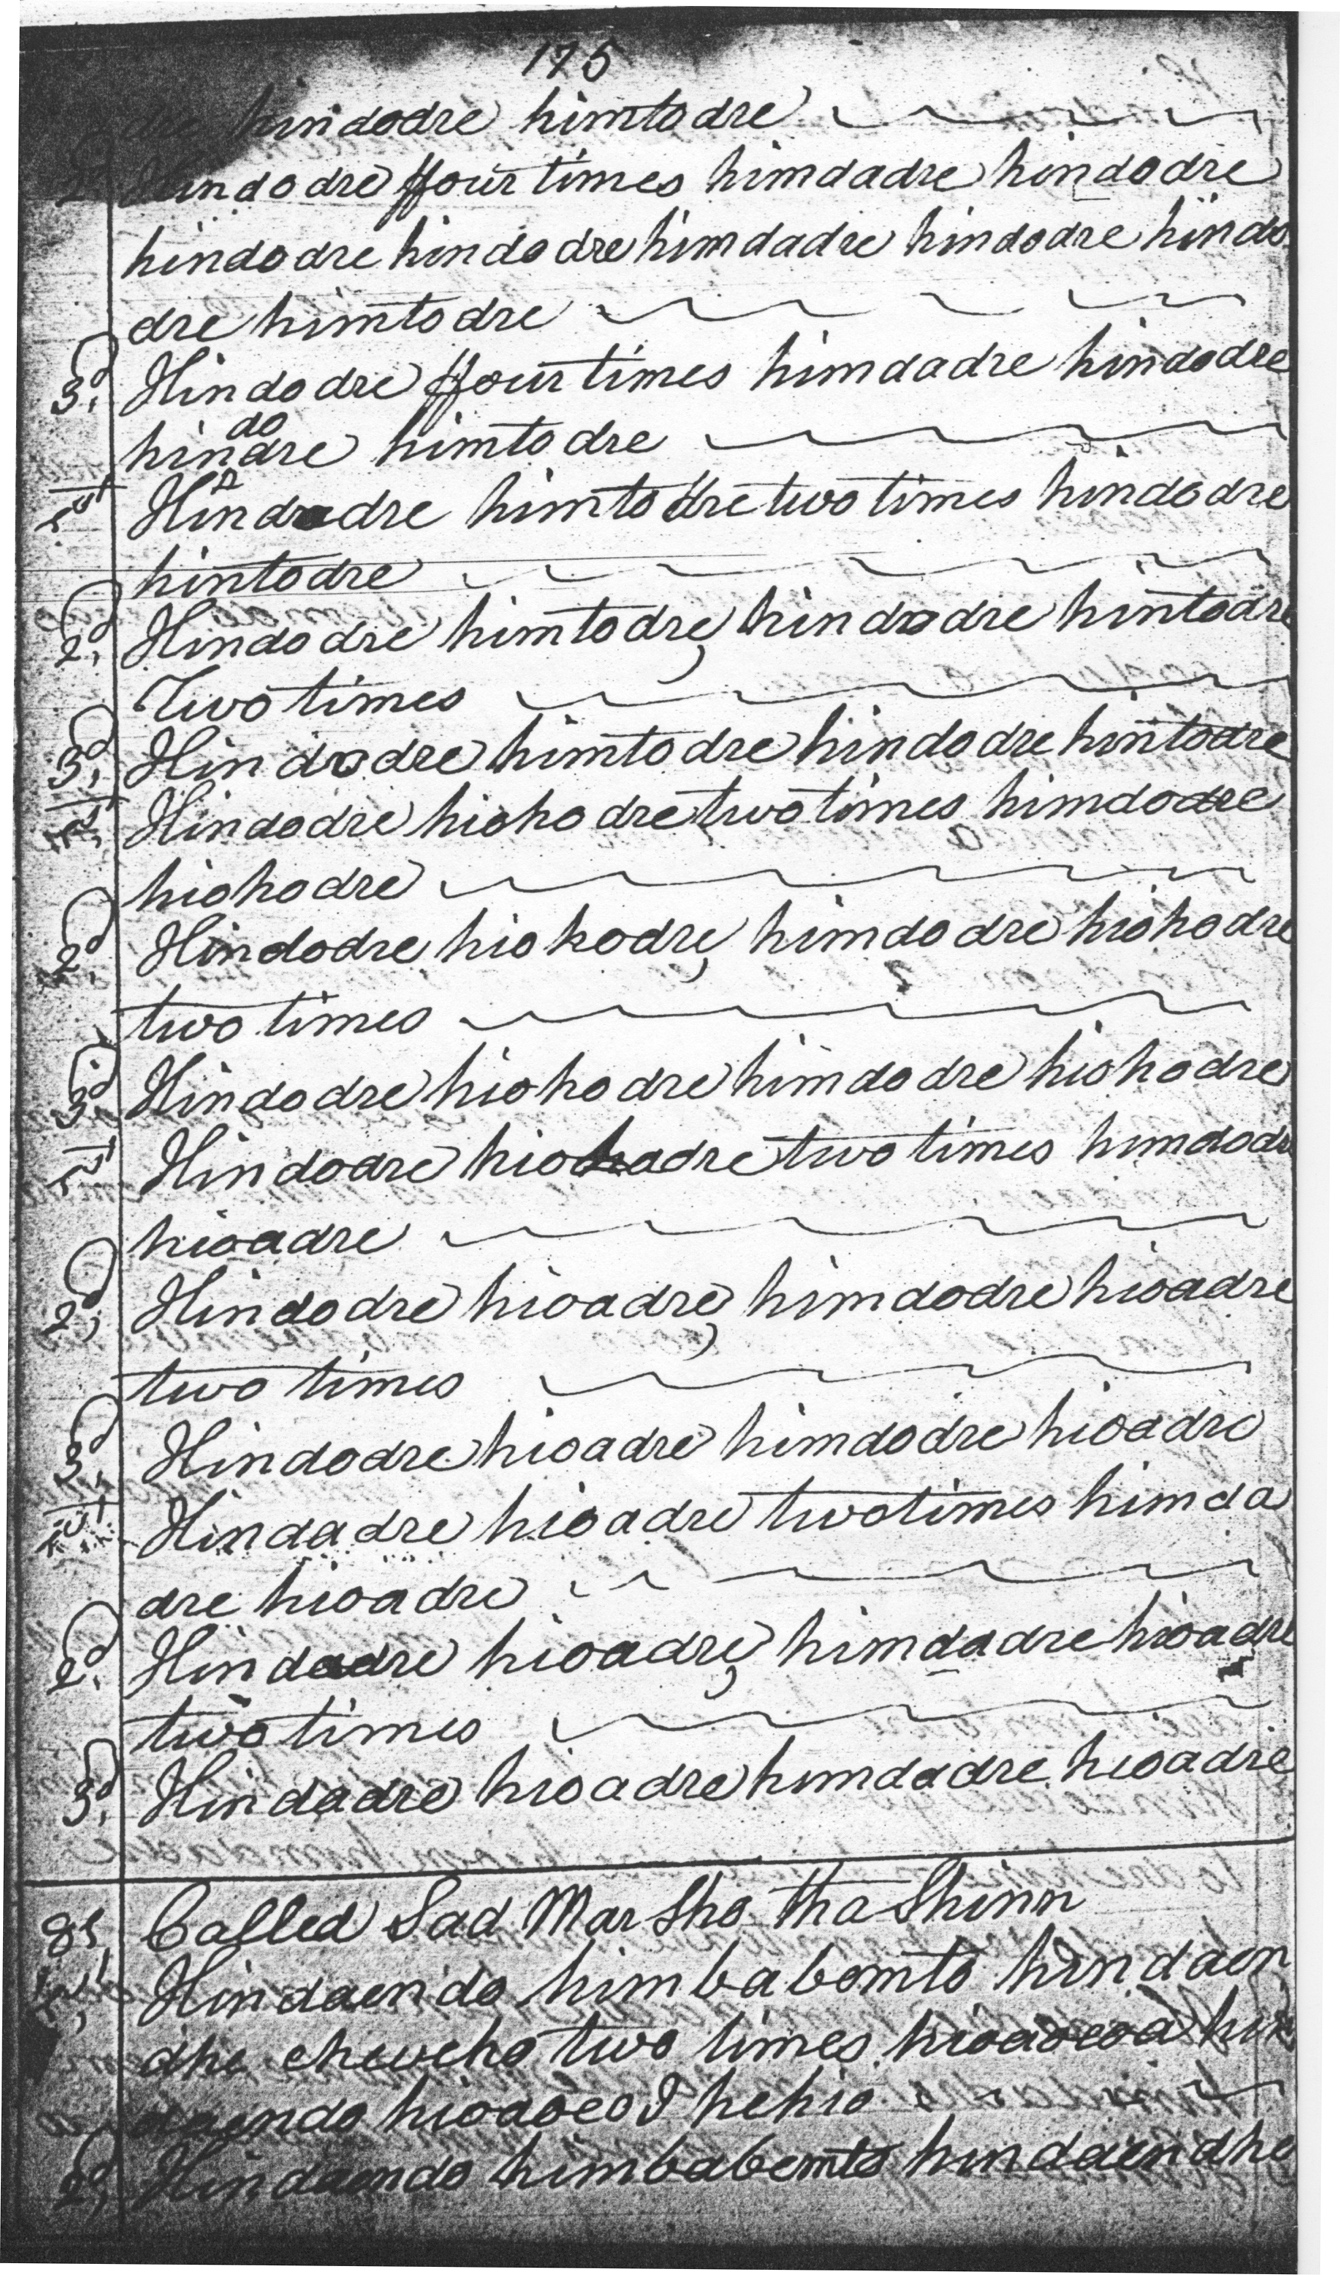 175
dre hindodre himtodre
2d Hindodre ffour times himdadre hindodre
hindodre hindodre himdadre hindodre hindo
dre himtodre
3d, Hindodre ffour times himdadre hindodre
hindodre himtodre
1st Hindodre himtodre two times hindodre
hintodre
2d, Hindodre himtodre, hindodre hintodre
Two times
3d, Hindodre himtodre hindodre hintodre
1st, Hindodre hiohodre two times himdodre
hiohodre
2d, Hindodre hiohodre, himdodre hiohodre
two times
3d, Hindodre hiohodre himdodre hiohodre
1st Hindodre hioadre two times himdodre
hioadre
2d, Hindodre hioadre, himdodre hioadre
two times
3d, Hindodre hioadre himdodre hioadre
1st Hindadre hioadre two times himda
dre hioadre
2d, Hindadre hioadre, himdadre hioadre
two times
3d, Hindadre hioadre himdadre hioadre
8t, Called Sad Mar Sho tha Shinn
1st, Hindaendo himbabemto hindaen
dhe chevcho two times hioaoeoa hin
daendo hioaoeo I hehio
2d, Hindaendo himbabemto hindaendhe